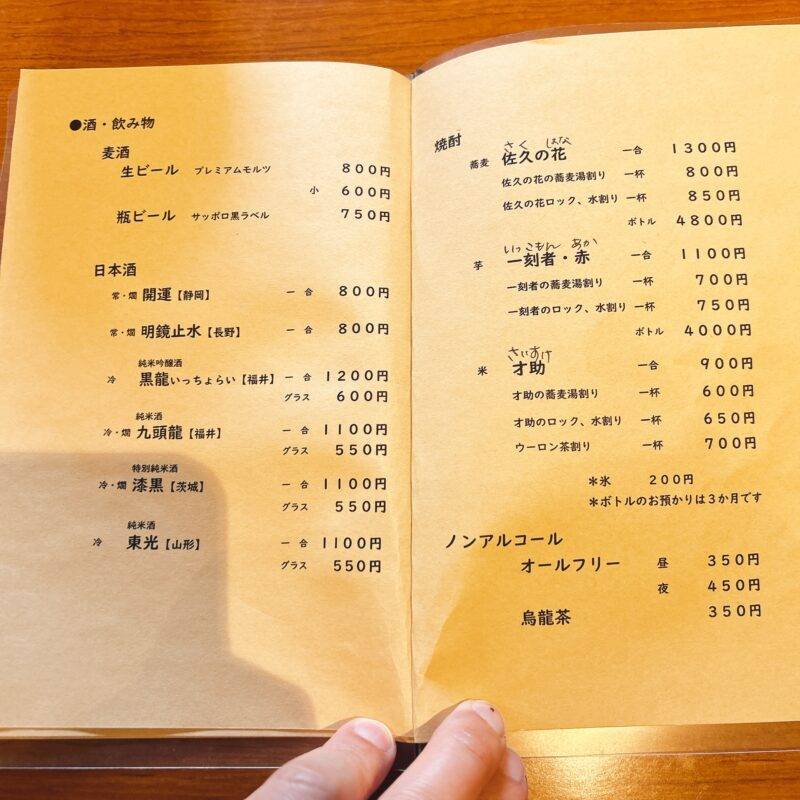 ●酒・飲み物
麦酒
生ビール プレミアムモルツ 800円
小 600円
瓶ビール サッポロ黒ラベル 750円
日本酒
常・燗 開運【静岡】 一合 800円
常・燗 明鏡止水【長野】 一合 800円
純米吟醸酒
冷 黒龍いっちょらい【福井】 一合 1200円
グラス 600円
純米酒
冷・燗 九頭龍【福井】 一合 1100円
グラス 550円
特別純米酒
冷・燗 漆黒【茨城】 一合 1100円
グラス 550円
純米酒
冷 東光【山形】 一合 1100円
グラス 550円
焼酎
さく はな
蕎麦 佐久の花 一合 1300円
佐久の花の蕎麦湯割り 一杯 800円
佐久の花ロック、水割り 一杯 850円
ボトル 4800円
いっこもん あか
芋 一刻者・赤 一合 1100円
一刻者の蕎麦湯割り 一杯 700円
一刻者のロック、水割り 一杯 750円
ボトル 4000円
さいすけ
米 才助 一合 900円
才助の蕎麦湯割り 一杯 600円
才助のロック、水割り 一杯 650円
ウーロン茶割り 一杯 700円
＊氷 200円
＊ボトルのお預かりは3か月です
ノンアルコール
オールフリー 昼 350円
夜 450円
烏龍茶 350円